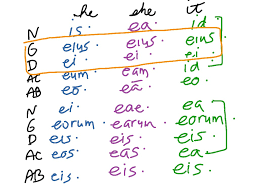 he she it
N is ea id
G eius eius eius
D ei ei ei
AC eum eam id
AB eō eā eo
N ei eae ea
G eorum earum eorum
D eis eis eis
AC eos eas ea
AB eis eis eis